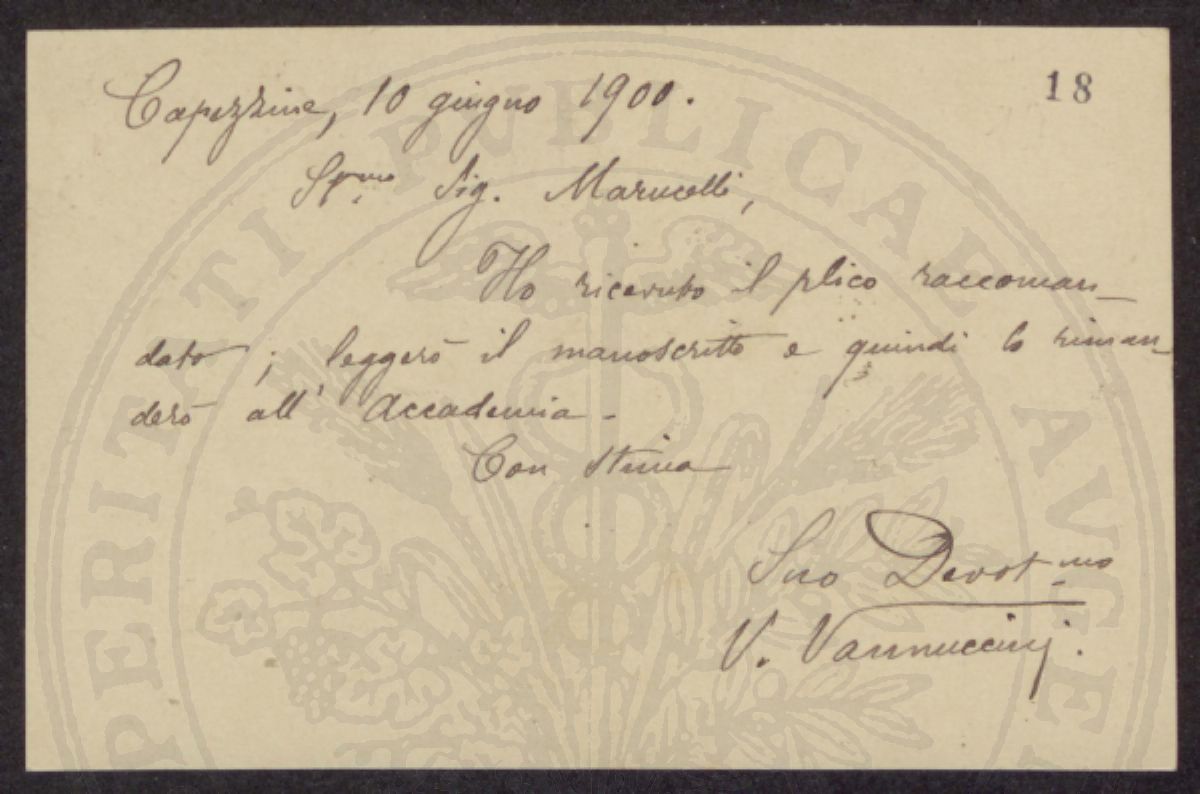 18
Capezzine, 10 giugno 1900.
Spmo Sig. Marucelli,
Ho ricevuto il plico raccoman_
dato ; leggerò il manoscritto e quindi lo riman_
derò all' Accademia -
Con stima
Suo Devotmo
V. Vannuccinj.
PROSPERITATI PVBLICAE AVGE